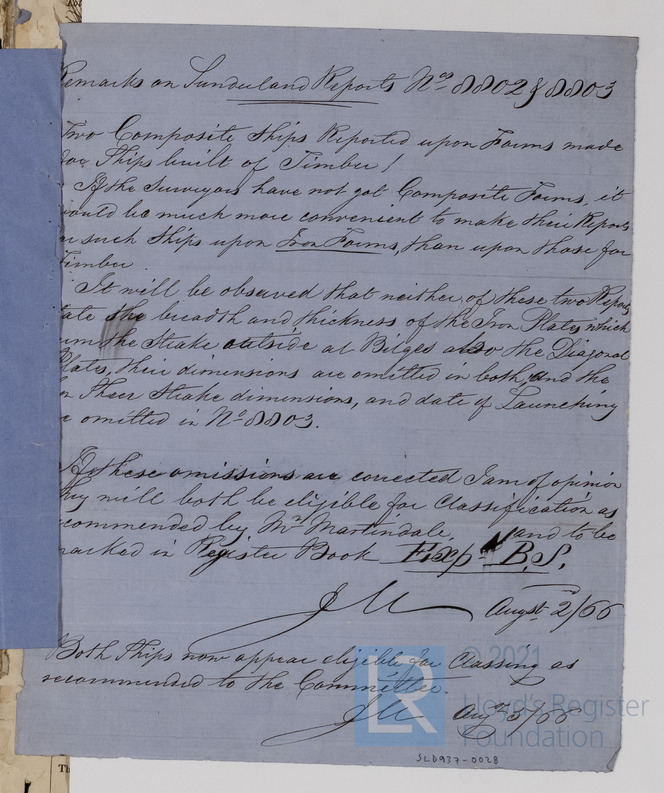 Remarks on Sunderland Reports Nos 8802 & 8803
Two Composite Ships Reported upon Forms made
for Ships built of Timber!
If the Surveyors have not got Composite Forms, it
would be much more convenient to make their Reports
on such Ships upon Iron Forms, than upon those for
Timber.
It will be observed that neither of these two Reports
state the breadth and thickness of the Iron Plates which
the Strake outside at Bilges also the Diagonal
Plates, their dimensions are omitted in both, and the
Sheer Strake dimensions, and date of Launching
are omitted in No 8803.
If these omissions are corrected I am of opinion
they will both be eligible for Classification as
recommended by Mr Martindale, and to be
marked in Register Book Expl B.S.
Augst 2/66
Both Ships now appear eligible for Classing as
recommended to the Committee.
Aug 3/66
© 2021
LR
Lloyd's Register
Foundation
SLD937-0028
Th